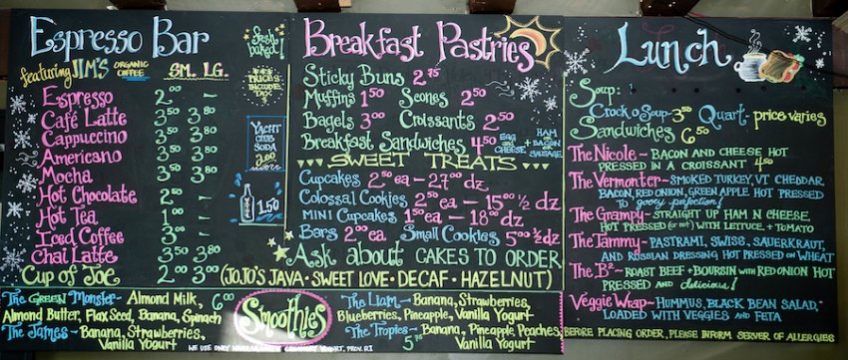 Espresso Bar
featuring JIM'S ORGANIC COFFEE SM. LG.
Espresso 2.00 —
Café Latte 3.50 3.80
Cappuccino 3.50 3.80
Americano 3.50 3.80
Mocha 3.50 3.80
Hot Chocolate 2.50 —
Hot Tea 1.00 —
Iced Coffee 3.00 —
Chai Latte 3.50 3.80
Cup of Joe 2.00 3.00 (JOJO'S JAVA · SWEET LOVE · DECAF · HAZELNUT)
fresh baked!
PRICES INCLUDE TAX
YACHT CLUB SODA
2.00
1.50
Breakfast Pastries
Sticky Buns 2.75
Muffins 1.50 Scones 2.50
Bagels 3.00 Croissants 2.50
Breakfast Sandwiches 4.50 EGG and CHEESE + HAM BACON or SAUSAGE
SWEET TREATS
Cupcakes 2.50 ea - 27.00 dz
Colossal Cookies 2.50 ea - 15.00 ½ dz
MINI Cupcakes 1.50 ea - 18.00 dz
Bars 2.00 ea Small Cookies 5.00 ½ dz
Ask about CAKES TO ORDER
Lunch
Soup:
Crock o Soup - 3.50 Quart - price varies
Sandwiches 6.50
The Nicole - BACON AND CHEESE HOT
PRESSED IN A CROISSANT 4.50
The Vermonter - SMOKED TURKEY, VT CHEDDAR,
BACON, RED ONION, GREEN APPLE HOT PRESSED
to gooey perfection!
The Grampy - STRAIGHT UP HAM N CHEESE,
HOT PRESSED (or not) WITH LETTUCE + TOMATO
The Tammy - PASTRAMI, SWISS, SAUERKRAUT,
AND RUSSIAN DRESSING HOT PRESSED ON WHEAT
The B² - ROAST BEEF + BOURSIN WITH RED ONION HOT
PRESSED and delicious!
Veggie Wrap - HUMMUS, BLACK BEAN SALAD,
LOADED WITH VEGGIES AND FETA
BEFORE PLACING ORDER, PLEASE INFORM SERVER OF ALLERGIES
Smoothies
The Green Monster - Almond Milk, 6.00
Almond Butter, Flax Seed, Banana, Spinach
The James - Banana, Strawberries,
Vanilla Yogurt
The Liam - Banana, Strawberries,
Blueberries, Pineapple, Vanilla Yogurt
The Tropics - Banana, Pineapple, Peaches,
5.75 Vanilla Yogurt
WE USE ONLY YOGURT, PROV. RI